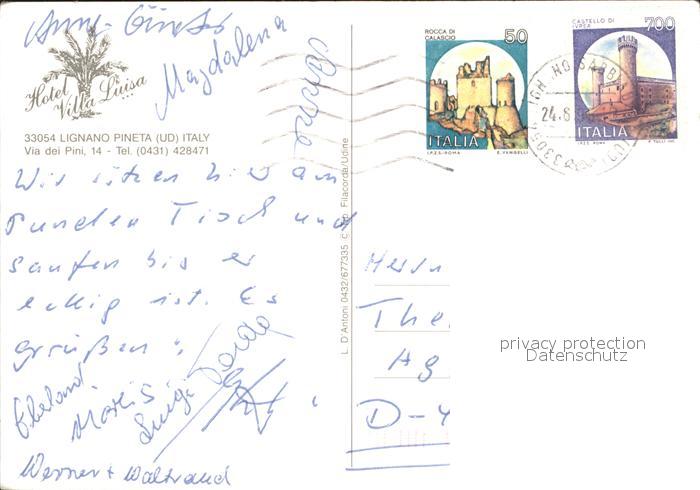 Magdalena
Hotel
Villa Luisa
33054 LIGNANO PINETA (UD) ITALY
Via dei Pini, 14 - Tel. (0431) 428471
Wir sitzen hier am
runden Tisch und
saufen bis er
eckig ist. Es
grüßen:
Luigi
Werner + Waltraud
L. D'Antoni 0432/677335 Filacorda/Udine
ROCCA DI
CALASCIO
50
ITALIA
I.P.Z.S.-ROMA E. VANGELLI
CASTELLO DI
IVREA
700
ITALIA
I.P.Z.S. ROMA P. TULLI INC.
24.8
Herrn
The
Ag
D-4
privacy protection
Datenschutz